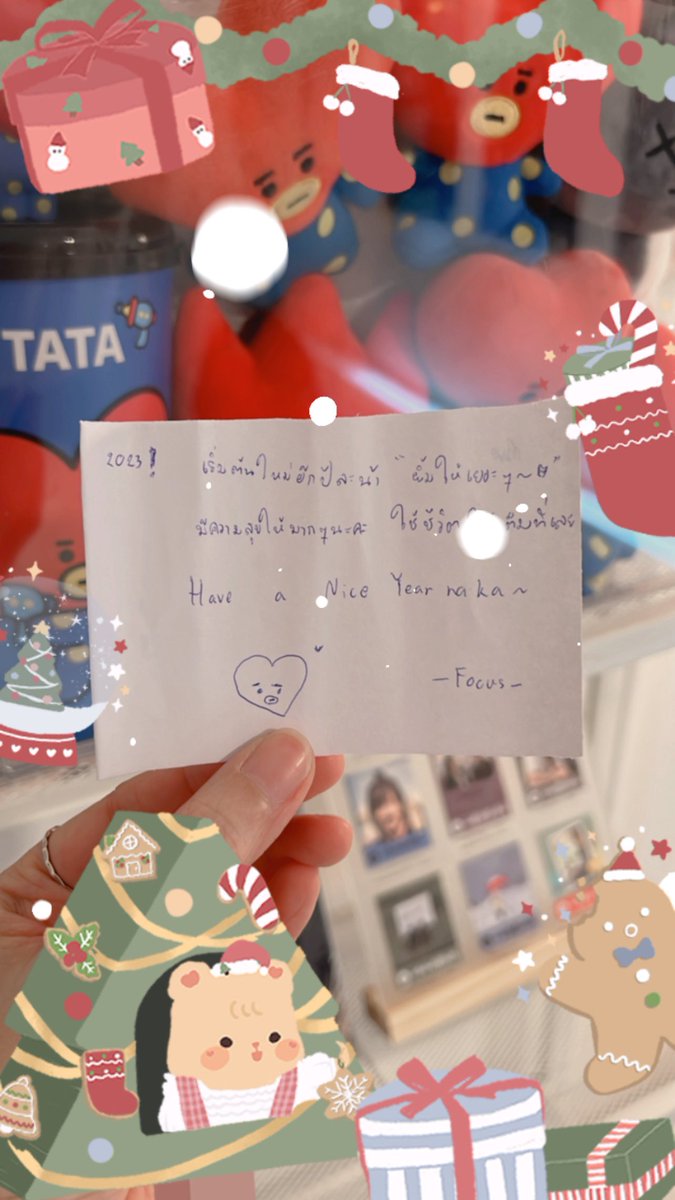 TATA
2023! เริ่มต้นใหม่อีกปีละน้า "ยิ้มให้เยอะๆ~"
มีความสุขให้มากๆนะคะ ใช้ชีวิต เต็มที่เลย
Have a Nice Year na ka~
-Focus-